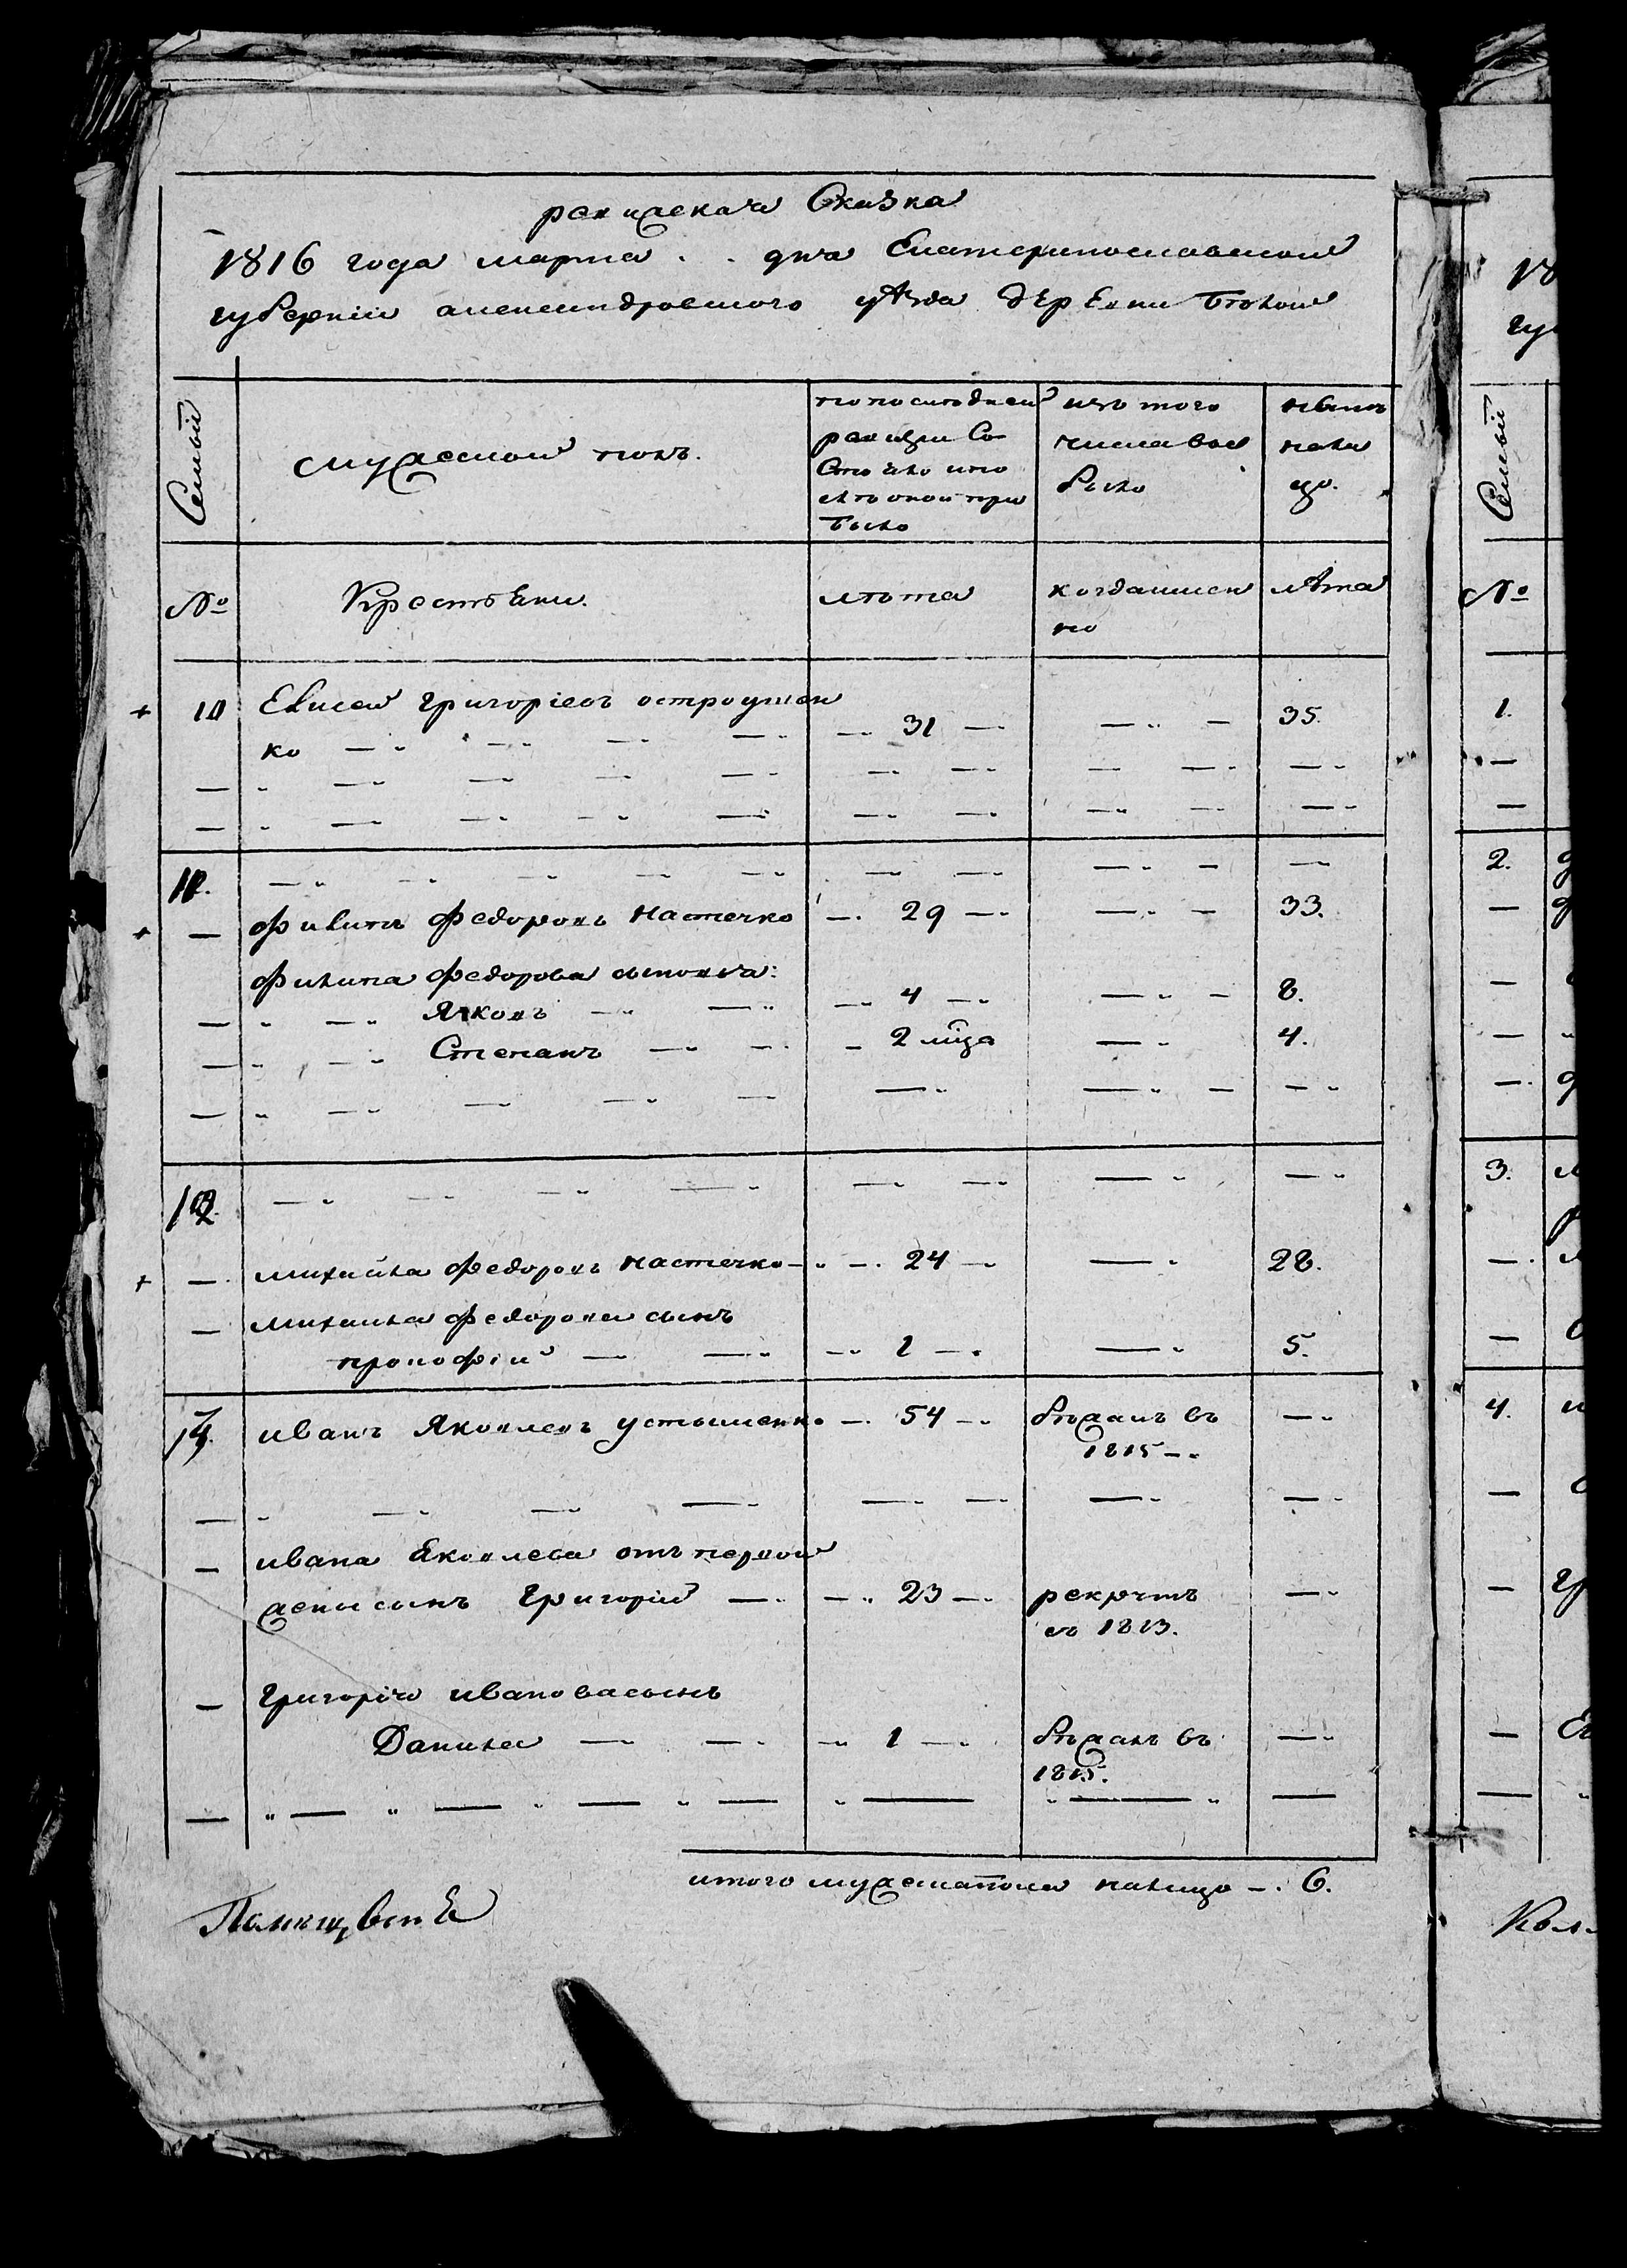 ревижская Сказка
1816 года марта . . дня Екатеринославской
губернiи александровского уѣзда дEрEвни бѣлой
Семьи
мужеской полъ.
по последней
ревизiи Со
Стояло и по
слѣ оной при
было
изъ того
числа вы
было
нынѣ
нали
цо.
№
КрестьEни.
лѣта
когда имен
но
лѣта
+ 10 Елисей григорiевъ остроушен
ко 31 35.
11.
+ филипъ федоровъ Настечко 29 33.
филипа федорова сыновья:
Яковъ 4 8.
Степанъ 2 мѣца 4.
12.
+ михайла федоровъ Настечко 24 28.
михайла федорова сынъ
прокофiй 1 5.
иванъ Яковлевъ устименко 54 бѣжалъ въ
1815
ивана Яковлева отъ первой
жены сынъ Григорiй 23 рекрутъ
въ 1813.
Григорiя иванова сынъ
Данила 1 бѣжалъ въ
1815.
итого мужеска пола налицо 6.
Семьи
№
1.
2.
3.
4.